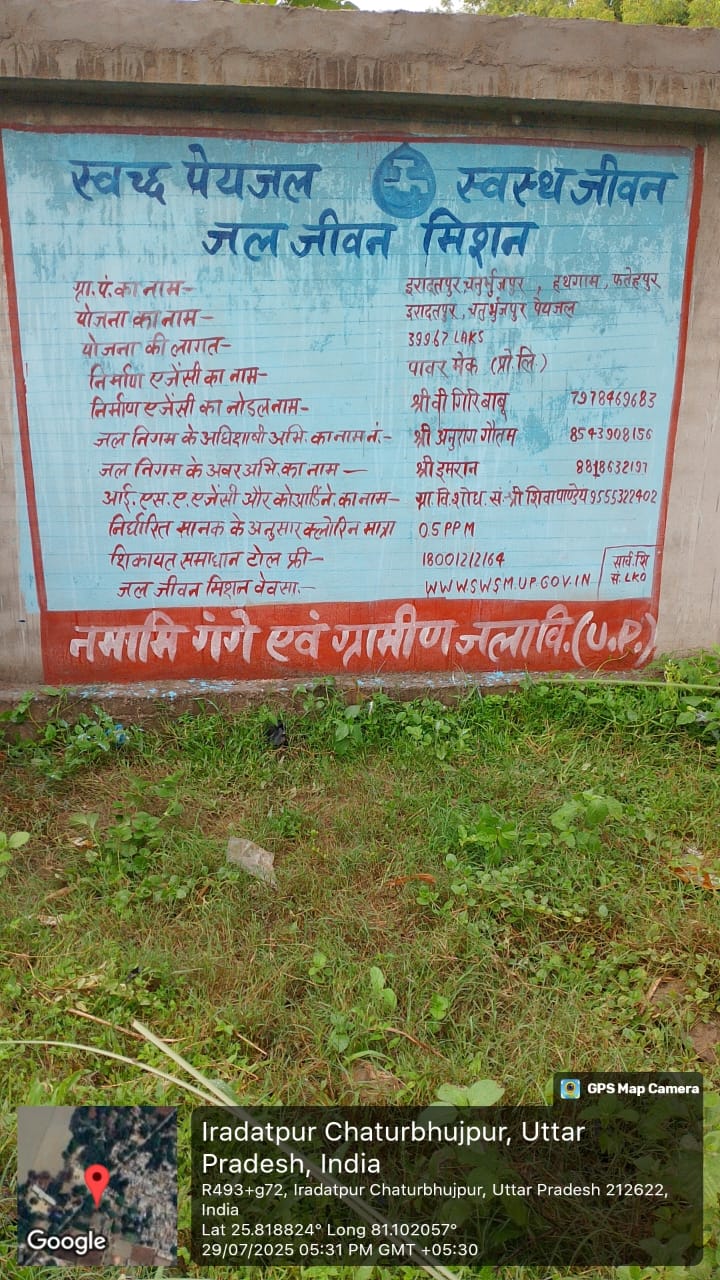 स्वच्छ पेयजल स्वस्थ जीवन
जल जीवन मिशन
ग्रा.पं.का नाम- इरादतपुर,चतुर्भुजपुर , हथगाम, फतेहपुर
योजना का नाम- इरादतपुर, चतुर्भुजपुर पेयजल
योजना की लागत- 399.67 LAKS
निर्माण एजेंसी का नाम- पावर मेक (प्रो.लि)
निर्माण एजेंसी का नोडल नाम- श्री वी गिरि बाबू 7978469683
जल निगम के अधिशाषी अभि. का नाम नं.- श्री अनुराग गौतम 8543908156
जल निगम के अवर अभि. का नाम - श्री इमरान 8818632197
आई.एस.ए.एजेंसी और कोआर्डिने.का नाम- ग्रा.वि.शोध.सं.-श्री शिवा पाण्डेय 9555322402
निर्धारित मानक के अनुसार क्लोरिन मात्रा 0.5 PPM
शिकायत समाधान टोल फ्री- 18001212164
जल जीवन मिशन वेवसा.- WWW.SWSM.UP.GOV.IN
सं. LKO
नमामि गंगे एवं ग्रामीण जला वि.(U.P.)
GPS Map Camera
Iradatpur Chaturbhujpur, Uttar
Pradesh, India
R493+g72, Iradatpur Chaturbhujpur, Uttar Pradesh 212622,
India
Lat 25.818824° Long 81.102057°
29/07/2025 05:31 PM GMT +05:30
Google